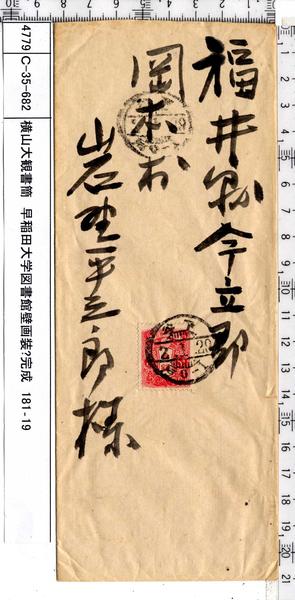 福井県今立郡
岡本村
岩野平三郎様
4779 C-35-682 横山大観書簡 早稲田大学図書館壁画装?完成 181-19